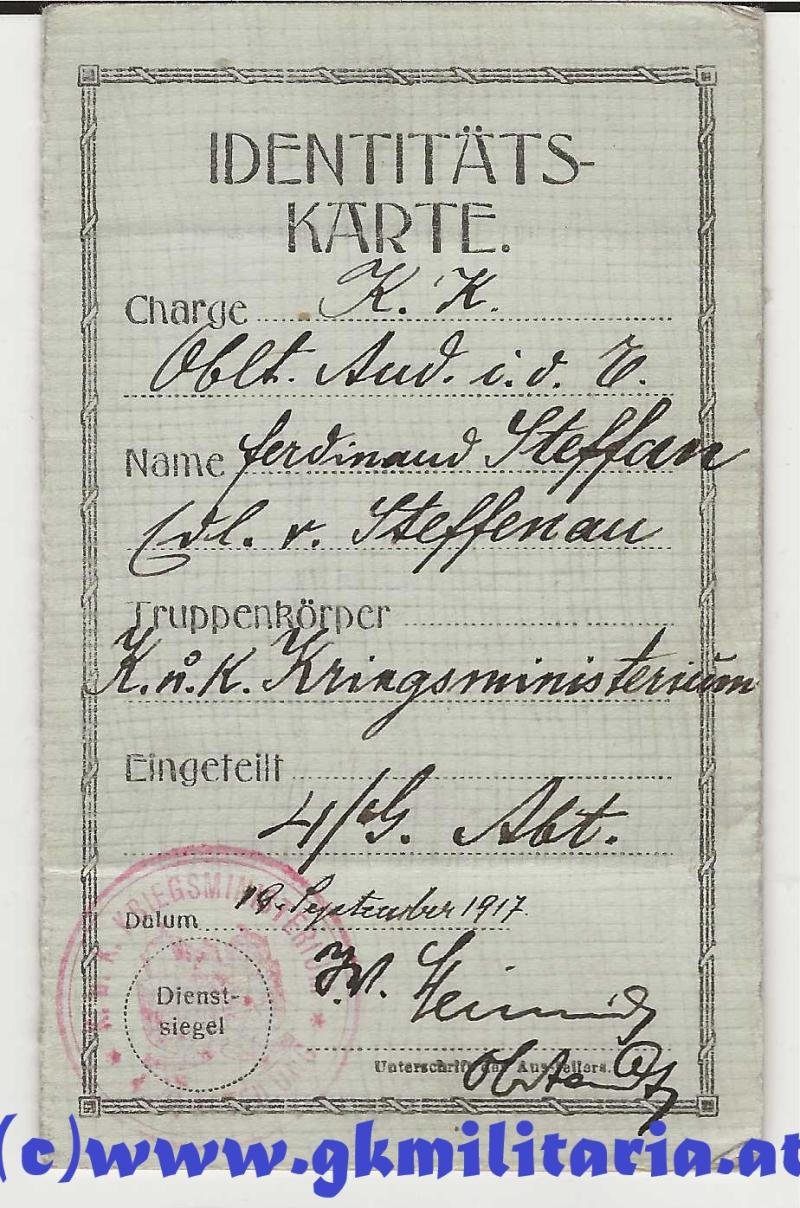 IDENTITÄTS-
KARTE.
Charge K. K.
Oblt. Aud. i. d. E.
Name Ferdinand Steffan
Edl. v. Steffenau
Truppenkörper
K. u. K. Kriegsministerium
Eingeteilt
4/G. Abt.
Datum 19. September 1917.
K. U. K. KRIEGSMINISTERIUM
Dienst-
siegel
Unterschrift des Ausstellers.
(c)www.gkmilitaria.at